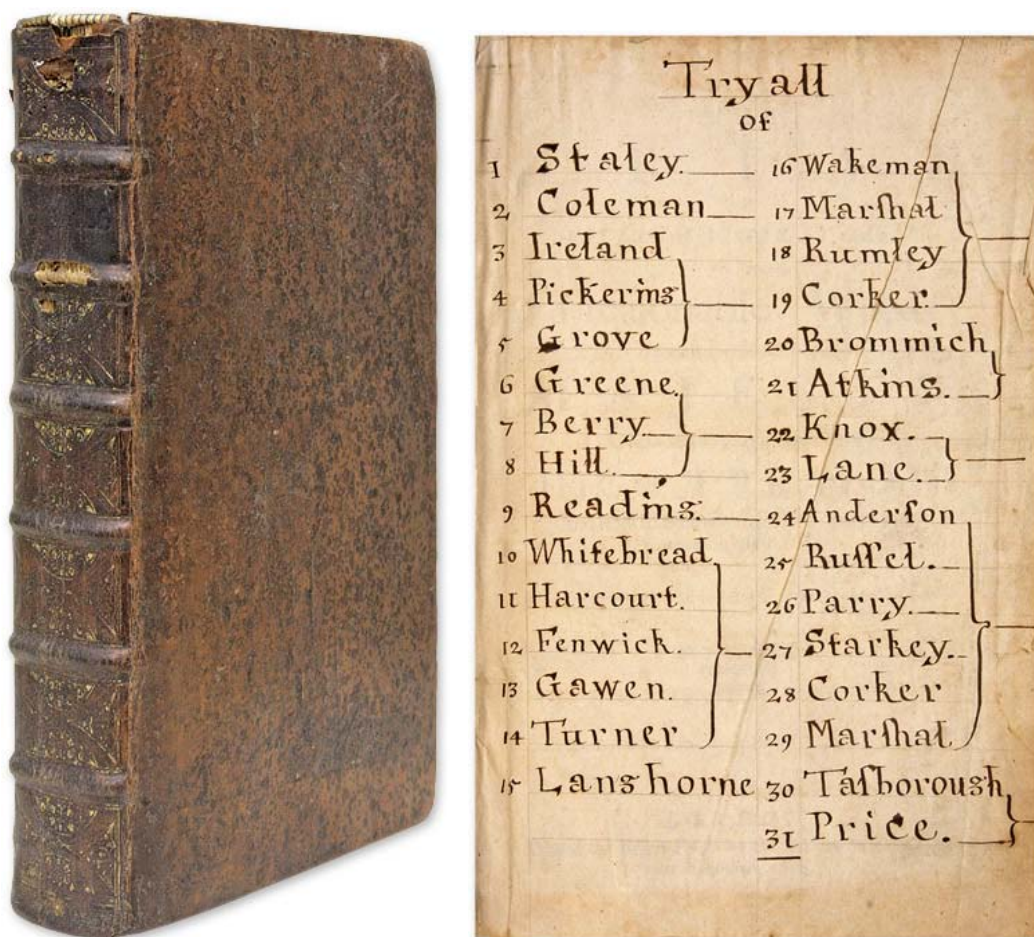 Tryall
of
1 Staley.
2 Coleman
3 Ireland
4 Pickering
5 Grove
6 Greene
7 Berry
8 Hill.
9 Reading.
10 Whitebread
11 Harcourt.
12 Fenwick.
13 Gawen.
14 Turner
15 Langhorne
16 Wakeman
17 Marſhal
18 Rumley
19 Corker.
20 Brommich
21 Atkins.
22 Knox.
23 Lane.
24 Anderſon
25 Ruſſel.
26 Parry.
27 Starkey.
28 Corker
29 Marſhal
30 Taſborough
31 Price.